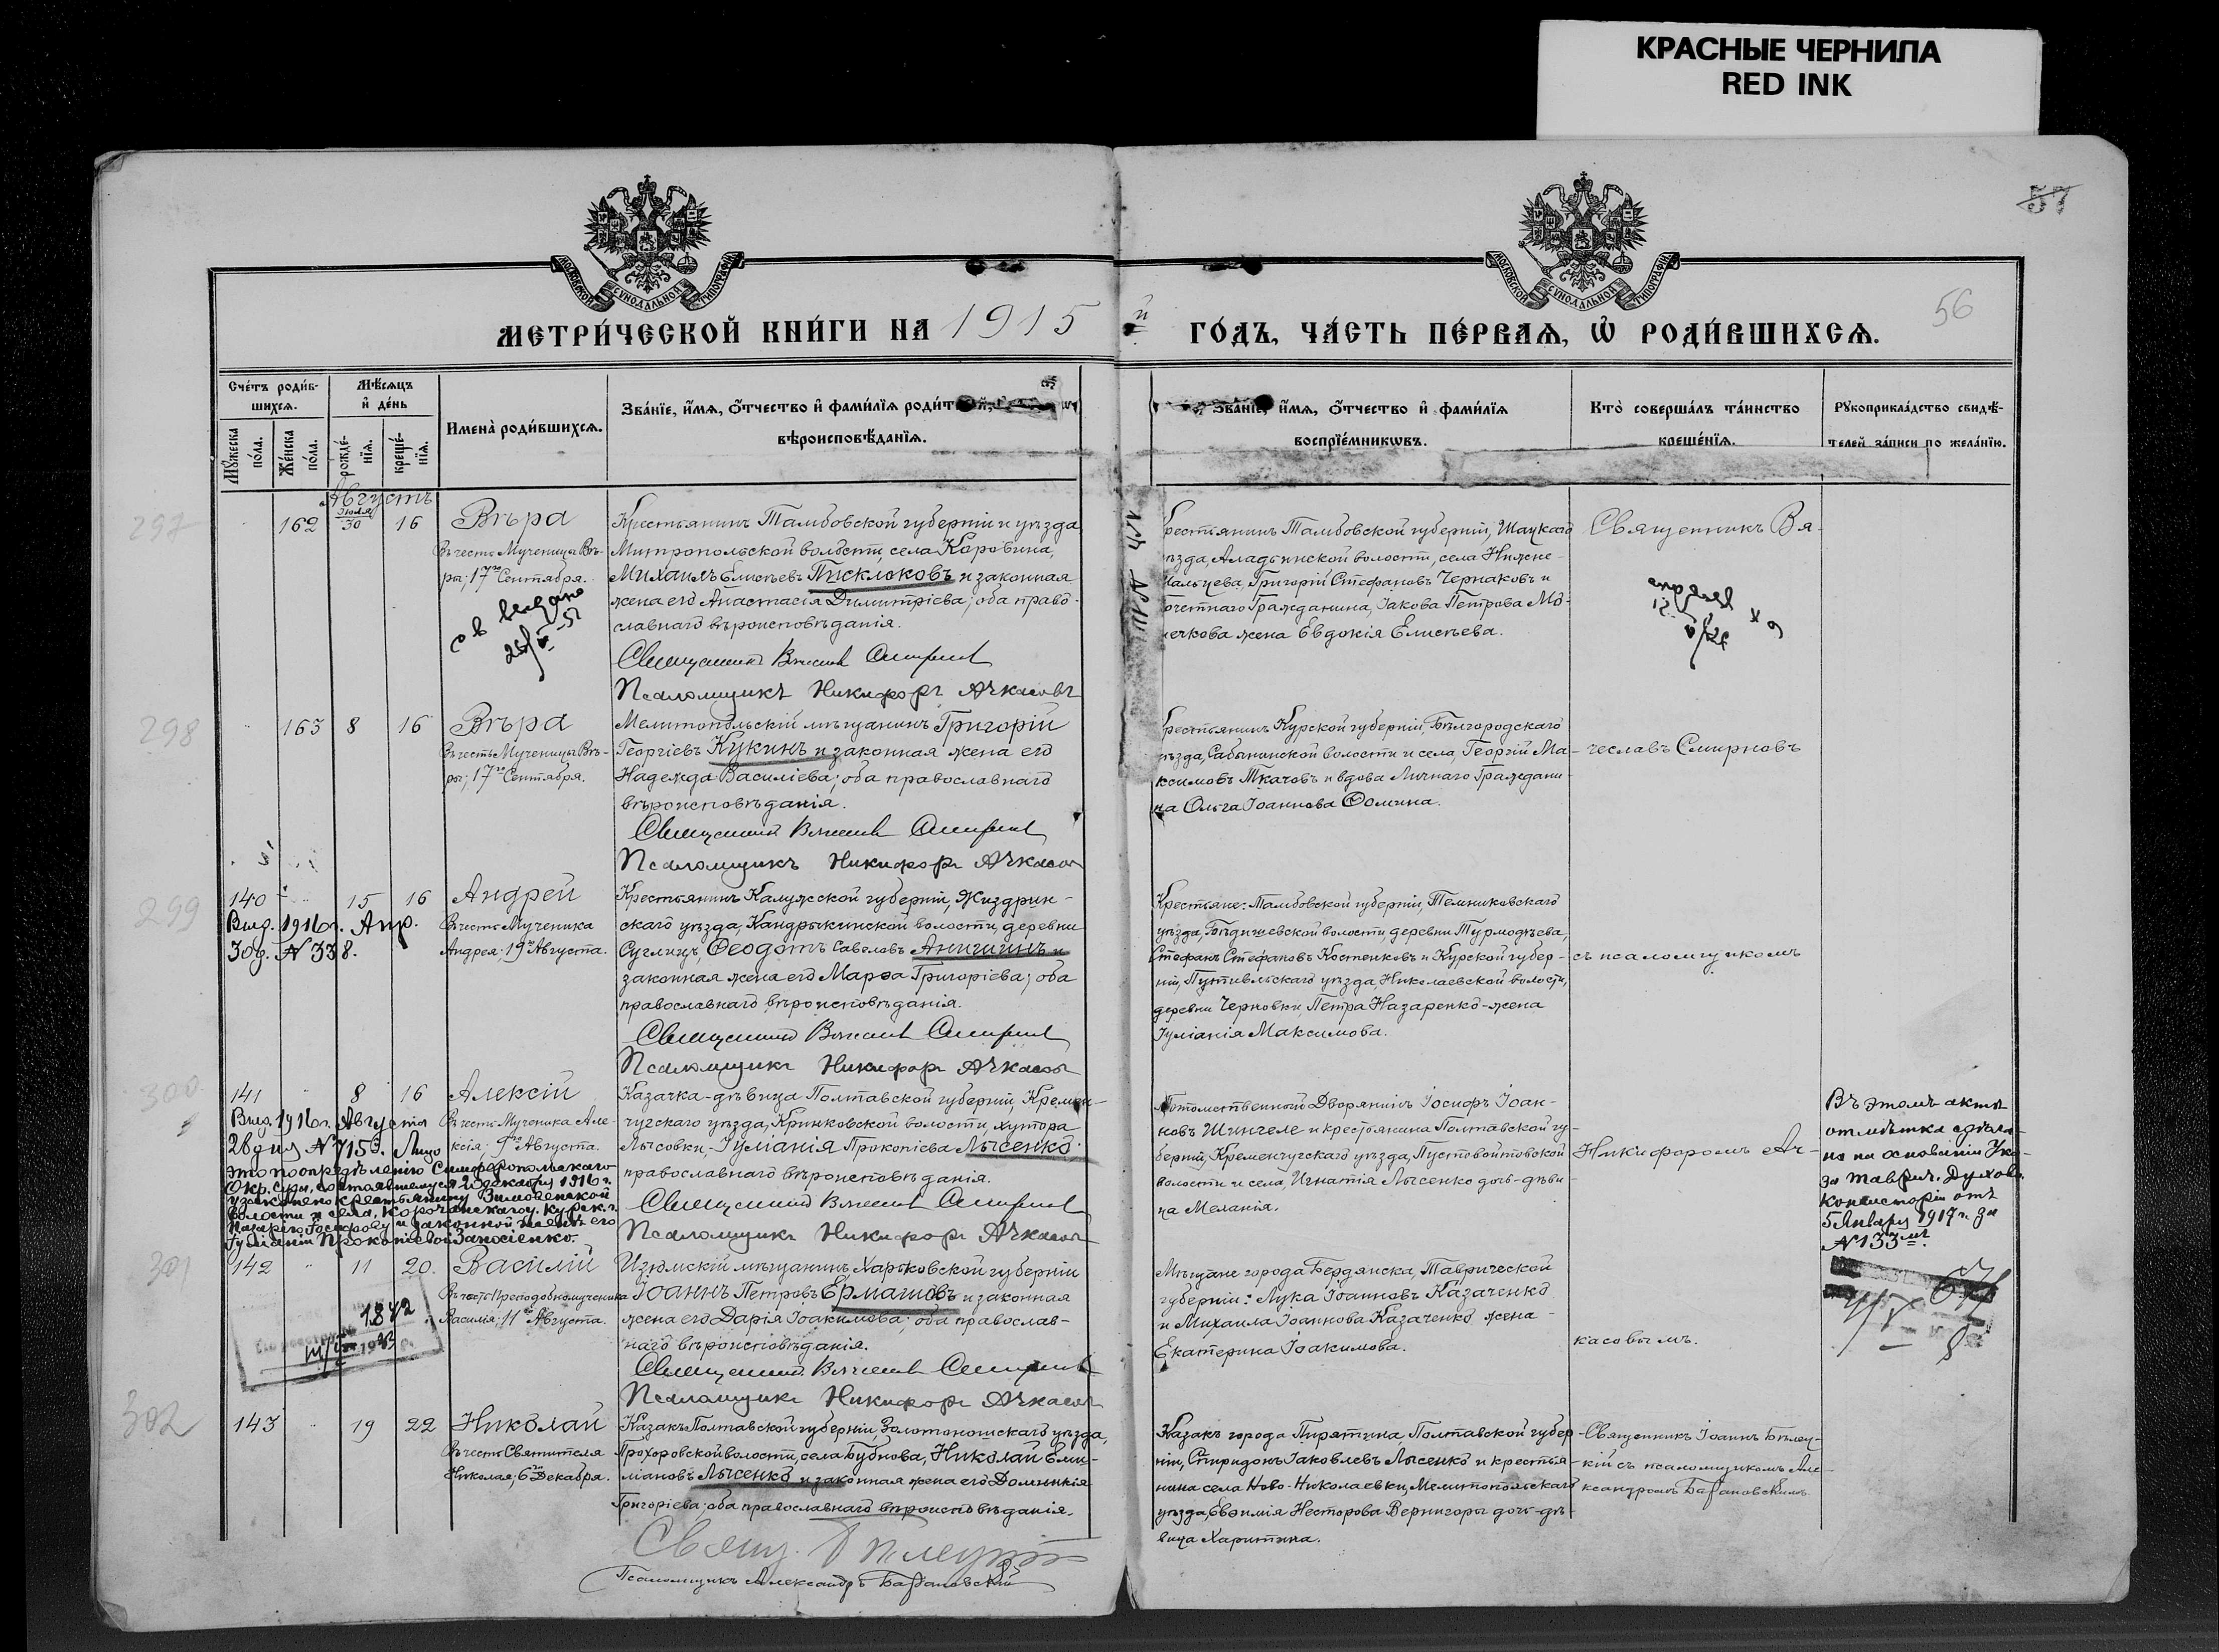 КРАСНЫЕ ЧЕРНИЛА
RED INK
57
56
МОСКОВСКОЙ СѴНОДАЛЬНОЙ ТИПОГРАФІИ
МОСКОВСКОЙ СѴНОДАЛЬНОЙ ТИПОГРАФІИ
МЕТРИ́ЧЕСКОЙ КНИ́ГИ НА 1915 й ГО́ДЪ, ЧА́СТЬ ПЕ́РВАѦ, Ѡ҆ РОДИ́ВШИХСѦ.
Сче́тъ роди́в-
шихсѧ.
Мѣ́сѧцъ
и҆ де́нь
Имена̀ роди́вшихсѧ.
Зва́нїе, и҆́мѧ, ѻ҆́тчество и҆ фами́лїѧ
вѣроисповѣ́данїѧ.
Мꙋ́жеска по́ла.
Же́нска по́ла.
рожде́-нїѧ.
креще́-нїѧ.
Зва́нїе, и҆́мѧ, ѻ҆́тчество и҆ фами́лїѧ
воспрїе́мникѡвъ.
Кто̀ соверша́лъ та́инство
креще́нїѧ.
Рꙋкоприкла́дство свидѣ́-
телей за́писи по жела́нїю.
Августъ
297
162 Іюля 30 16 Вѣра
Въ честь Мученицы Вѣ-
ры; 17го Сентября.
Крестьянинъ Тамбовской губерніи и уѣзда,
Митропольской волости, села Коровина,
Михаилъ Елисѣевъ Писклюковъ и законная
жена его Анастасія Димитріева; оба право-
славнаго вѣроисповѣданія.
Священникъ Вячеслав Смирнов
Псаломщикъ Никифоръ Ачкасовъ
рестьянинъ Тамбовской губерніи, Шацкаго
ѣзда, Аладьинской волости, села Нижне-
Мальцева, Григорій Стефановъ Чернаковъ и
очетнаго Гражданина, Іакова Петрова Мо-
чкова жена Евдокія Елисѣева.
Священникъ Вя-
298
163 8 16 Вѣра
Въ честь Мученицы Вѣ-
ры; 17го Сентября.
Мелитопольскій мѣщанинъ Григорій
Георгіевъ Кукинъ и законная жена его
Надежда Василіева; оба православнаго
вѣроисповѣданія.
Священникъ Вячеслав Смирнов
Псаломщикъ Никифоръ Ачкасов
рестьянинъ Курской губерніи, Бѣлгородскаго
ѣзда, Сабынинской волости и села, Георгій Ма-
ксимовъ Ткачовъ и вдова Личнаго Граждани-
на Ольга Іоаннова Ѳомина.
чеславъ Смирновъ
299
140 15 16 Андрей
Выд. 1916 г. Апр.
30 д. № 338.
Въ честь Мученика
Андрея; 19го Августа.
Крестьянинъ Калужской губерніи, Жиздрин-
скаго уѣзда, Кандрыкинской волости, деревни
Суглицъ, Ѳеодотъ Савеловъ Аничинъ и
законная жена его Марѳа Григоріева; оба
православнаго вѣроисповѣданія.
Священникъ Вячеслав Смирнов
Псаломщикъ Никифоръ Ачкасов
Крестьяне: Тамбовской губерніи, Темниковскаго
уѣзда, Бѣдишевской волости, деревни Турмодѣева,
Стефанъ Стефановъ Костенковъ и Курской губер-
ніи, Путивльскаго уѣзда, Николаевской волости,
деревни Черновки, Петра Назаренко-жена
Іуліанія Максимова.
съ псаломщикомъ
300
141 8 16 Алексій
Выд. 1916 г. Августа
28 дня № 715. Лицо
это по опредѣленію Симферопольскаго
Окр. суда, состоявшемуся 2 декабря 1916 г.
узаконено крестьянину
волости и села, Корочанскаго у. Курск. г.
Назарію Іосифову и законной женѣ его
Іуліаніи Прокопіевой Заносіенко.
Въ честь Мученика Але-
ксія; 9го Августа.
Казачка-дѣвица Полтавской губерніи, Кремен-
чугскаго уѣзда, Криниковской волости, хутора
Лысовки, Іуліанія Прокопіева Лысенко;
православнаго вѣроисповѣданія.
Священникъ Вячеслав Смирнов
Псаломщикъ Никифоръ Ачкасов
Потомственный Дворянинъ Іосифъ Іоан-
новъ Шингеле и крестьянина Полтавской гу-
берніи, Кременчугскаго уѣзда, Пустовойтовской
волости и села, Игнатія Лысенко дочь-дѣви-
ца Меланія.
Никифоромъ Ач-
Въ этомъ актѣ
отмѣтка сдѣла-
на на основаніи Ука-
за Таврич. Духовн.
Консисторіи отъ
5 Января 1917 г. за
№ 133мъ.
301
142 11 20. Василій
Въ честь Преподобномученика
Василія; 11го Августа.
1842
Изюмскій мѣщанинъ, Харьковской губерніи
Іоаннъ Петровъ Ермаковъ и законная
жена его Дарія Іоакимова; оба православ-
наго вѣроисповѣданія.
Священникъ Вячеслав Смирнов
Псаломщикъ Никифоръ Ачкасов
Мѣщане города Бердянска, Таврической
губерніи: Лука Іоанновъ Казаченко
и Михаила Іоаннова Казаченко жена-
Екатерина Іоакимова.
касовымъ.
302
143 19 22 Николай
Въ честь Святителя
Николая; 6го Декабря.
Казакъ Полтавской губерніи, Золотоношскаго уѣзда,
Прохоровской волости, села Бубнова, Николай Еми-
ліановъ Лысенко и законная жена его Домникія
Григоріева; оба православнаго вѣроисповѣданія.
Свящ. Бѣлецкій
Псаломщикъ Александръ Барановскій
Казакъ города Пирятина, Полтавской губер-
ніи, Спиридонъ Іаковлевъ Лысенко и крестья-
нина села Ново-Николаевки, Мелитопольскаго
уѣзда, Евѳимія Несторова Вернигоры дочь-дѣ-
вица Харитина.
Священникъ Іоаннъ Бѣлец-
кій съ псаломщикомъ Але-
ксандромъ Барановскимъ